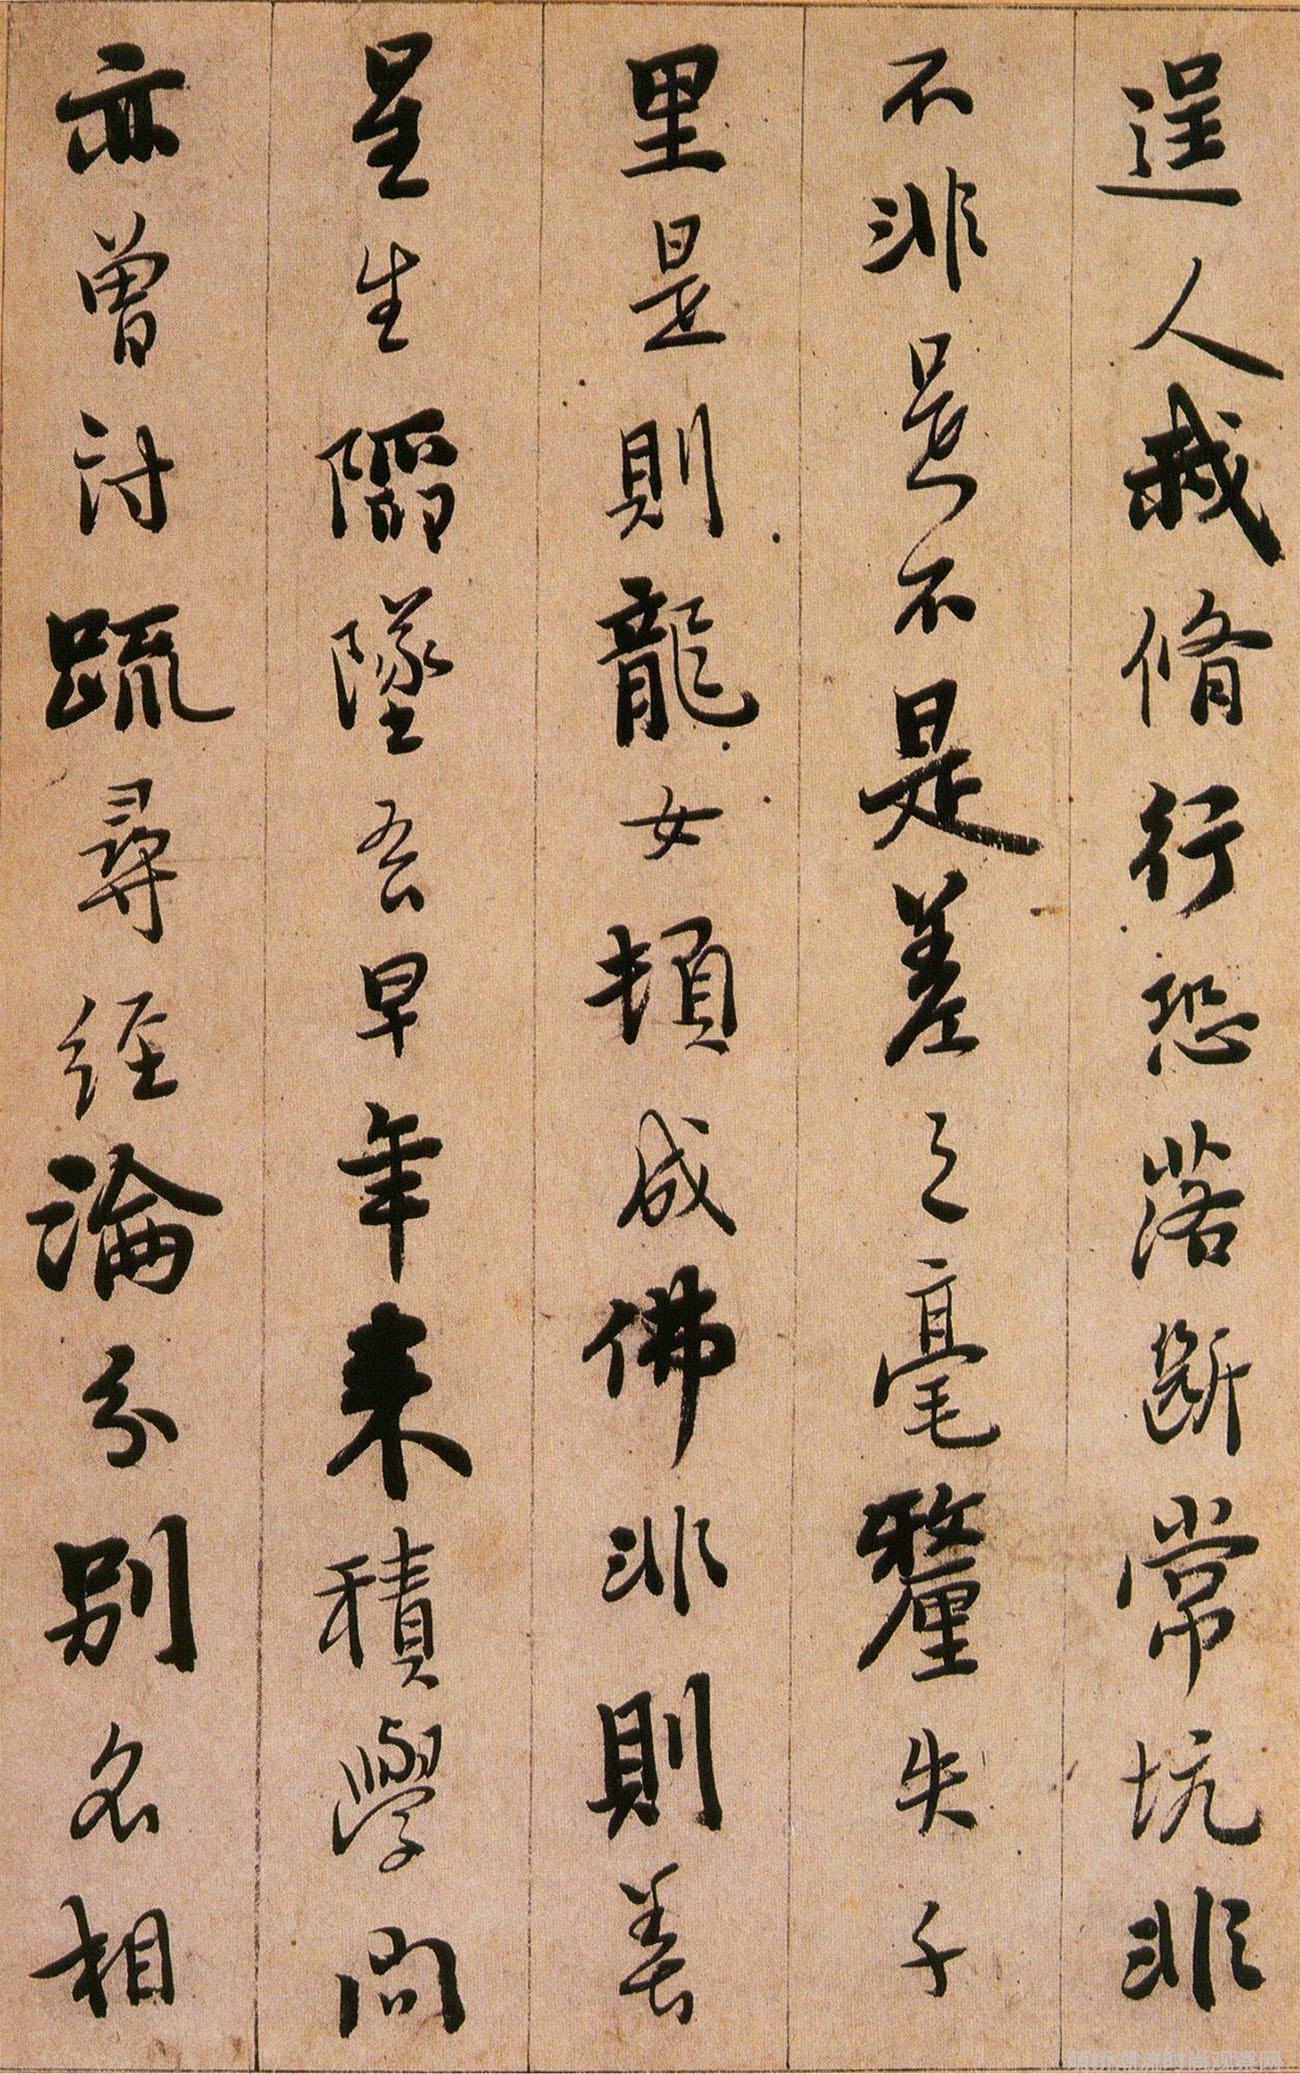 逞人我脩行恐落斷常坑非
不非是不是差之毫釐失千
里是則龍女頓成佛非則善
星生陷墜吾早年来積學問
亦曾討疏尋經論分別名相